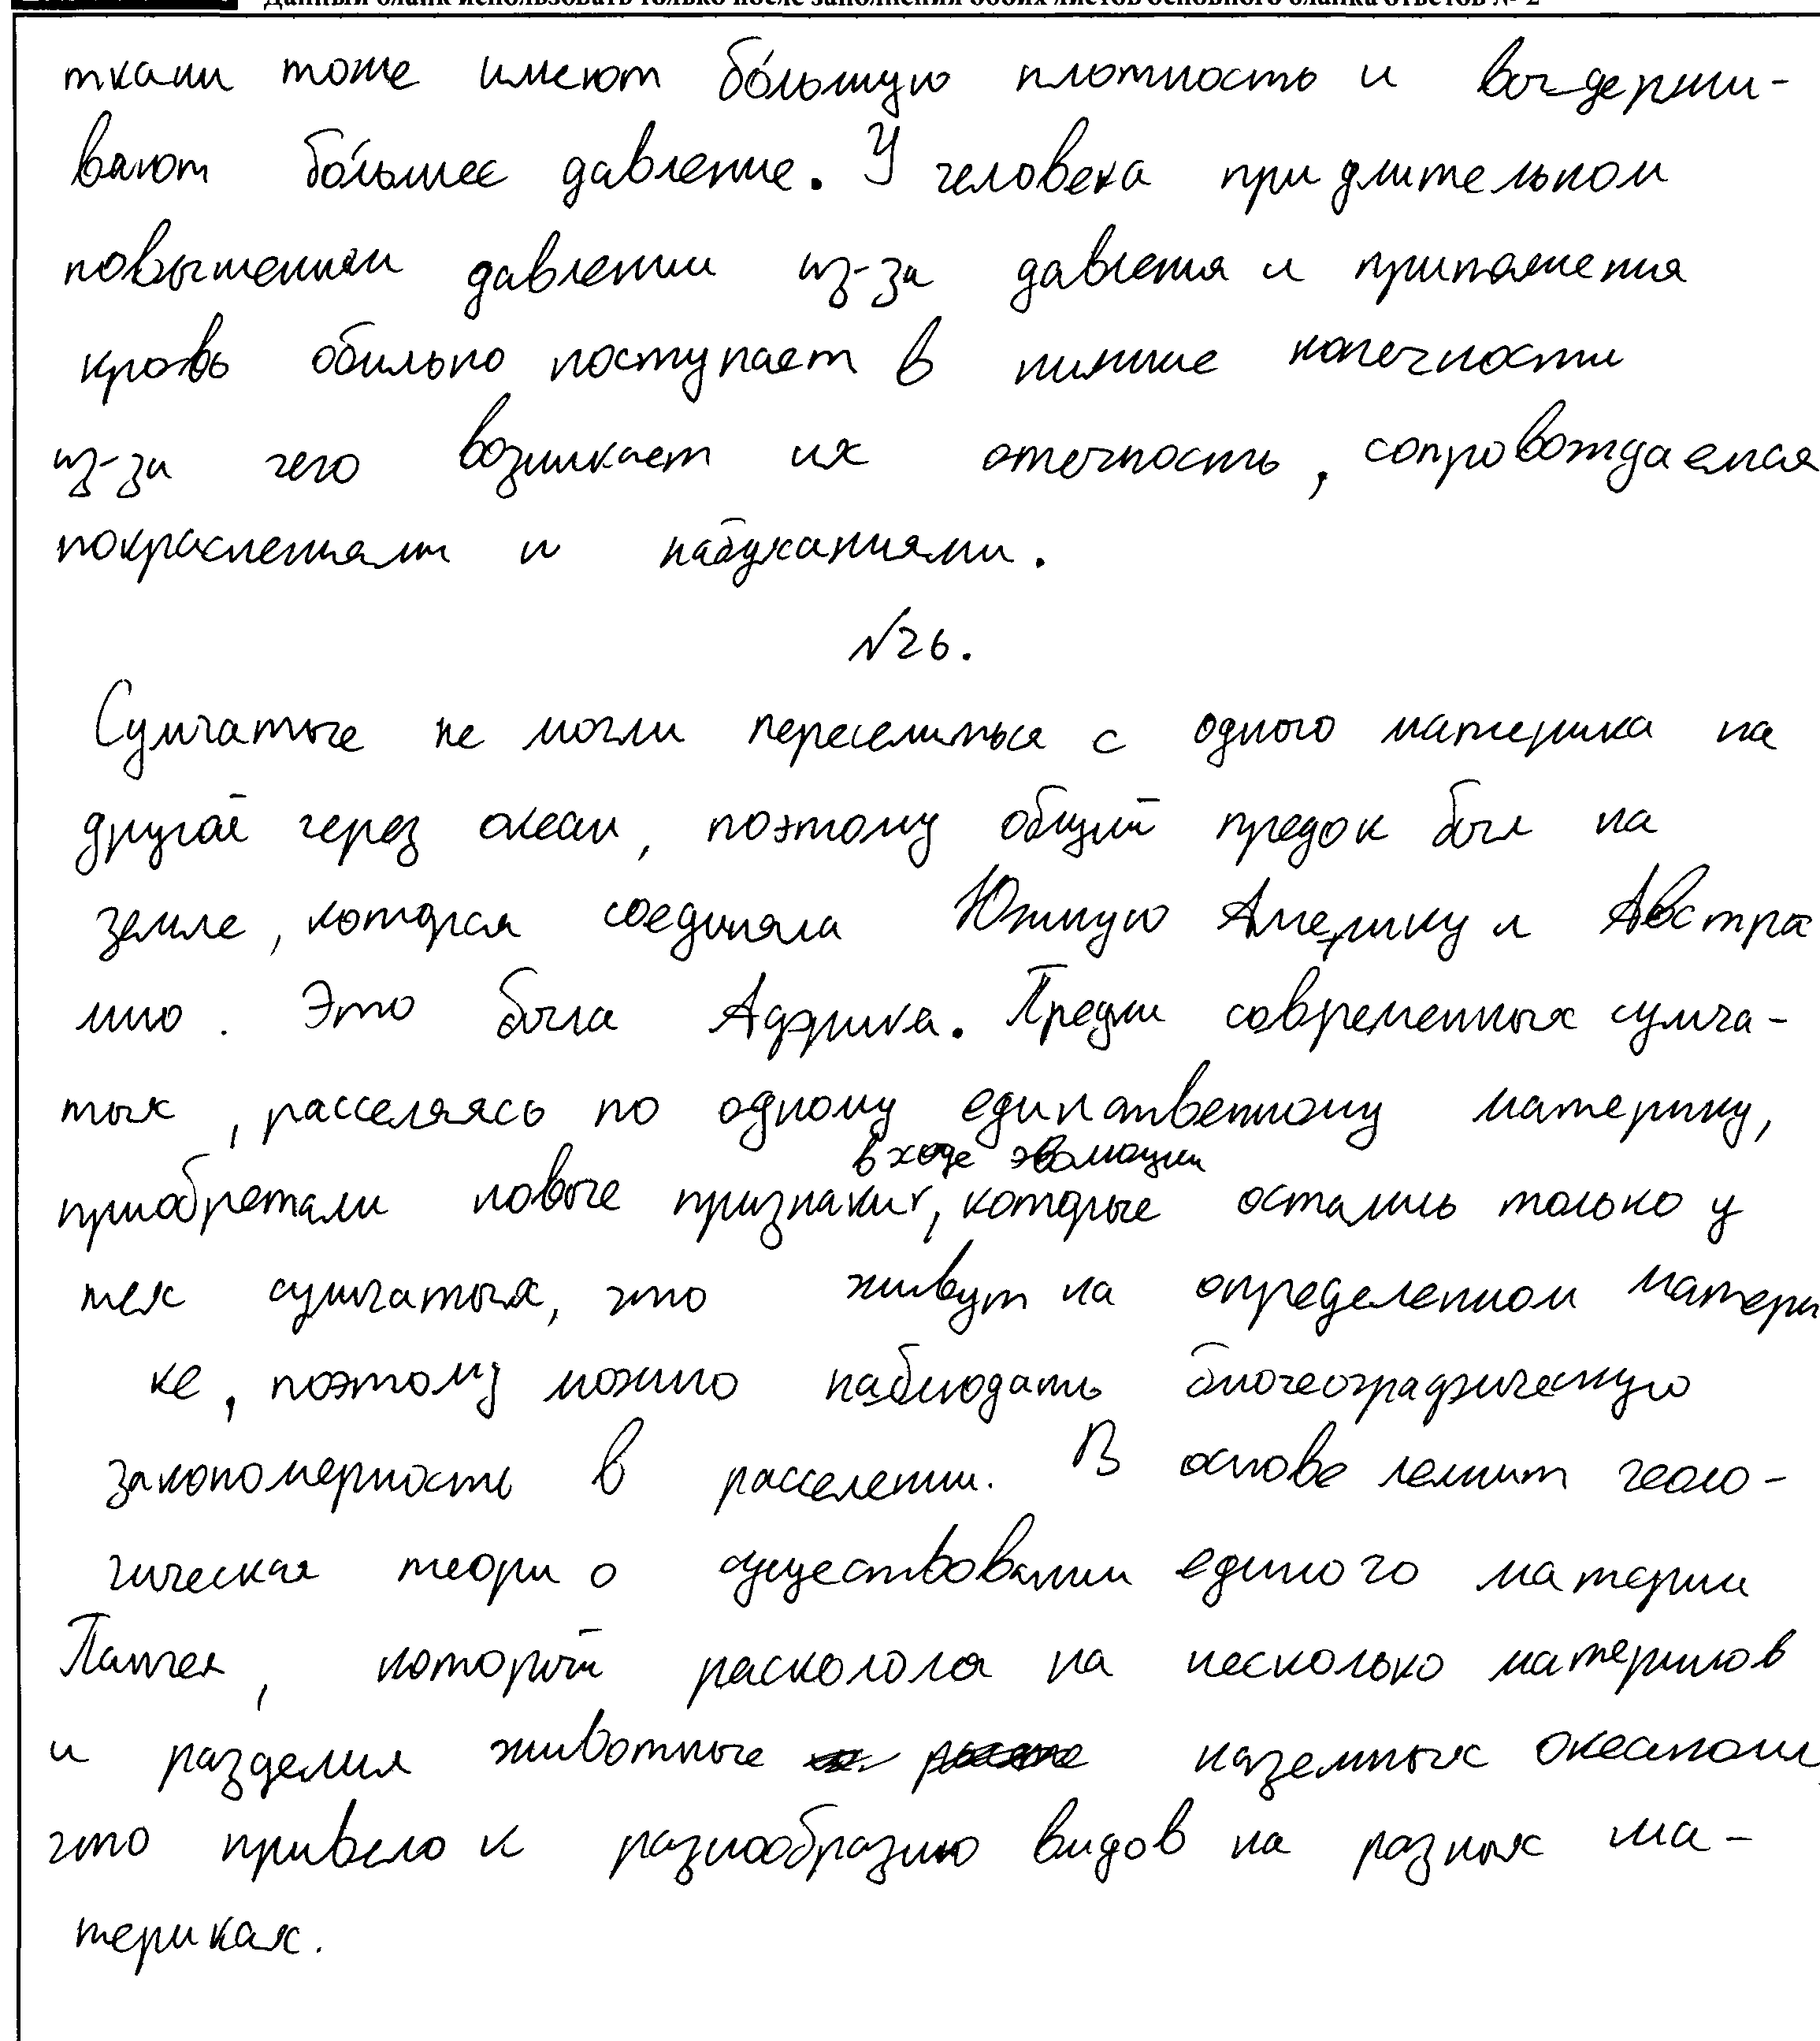 Данный бланк использовать только после заполнения обоих листов основного бланка ответов № 2
ткани тоже имеют бо́льшую плотность и выдержи-
вают бо́льшее давление. У человека при длительном
повышенном давлении из-за давления и притяжения
кровь обильно поступает в нижние конечности
из-за чего возникает их отечность, сопровождаемая
покраснениями и набуханиями.
№26.
Сумчатые не могли переселиться с одного материка на
другой через океан, поэтому общий предок был на
земле, которая соединяла Южную Америку и Австра
лию. Это была Африка. Предки современных сумча-
тых, расселяясь по одному единственному материку,
в ходе эволюции
приобретали новые признаки, которые остались только у
тех сумчатых, что живут на определенном матери
ке, поэтому можно наблюдать биогеографическую
закономерность в расселении. В основе лежит геоло-
гическая теори о существовании единого материи
Пангея, который раскололся на несколько материков
и разделил животные наземных океаном,
что привело к разнообразию видов на разных ма-
териках.